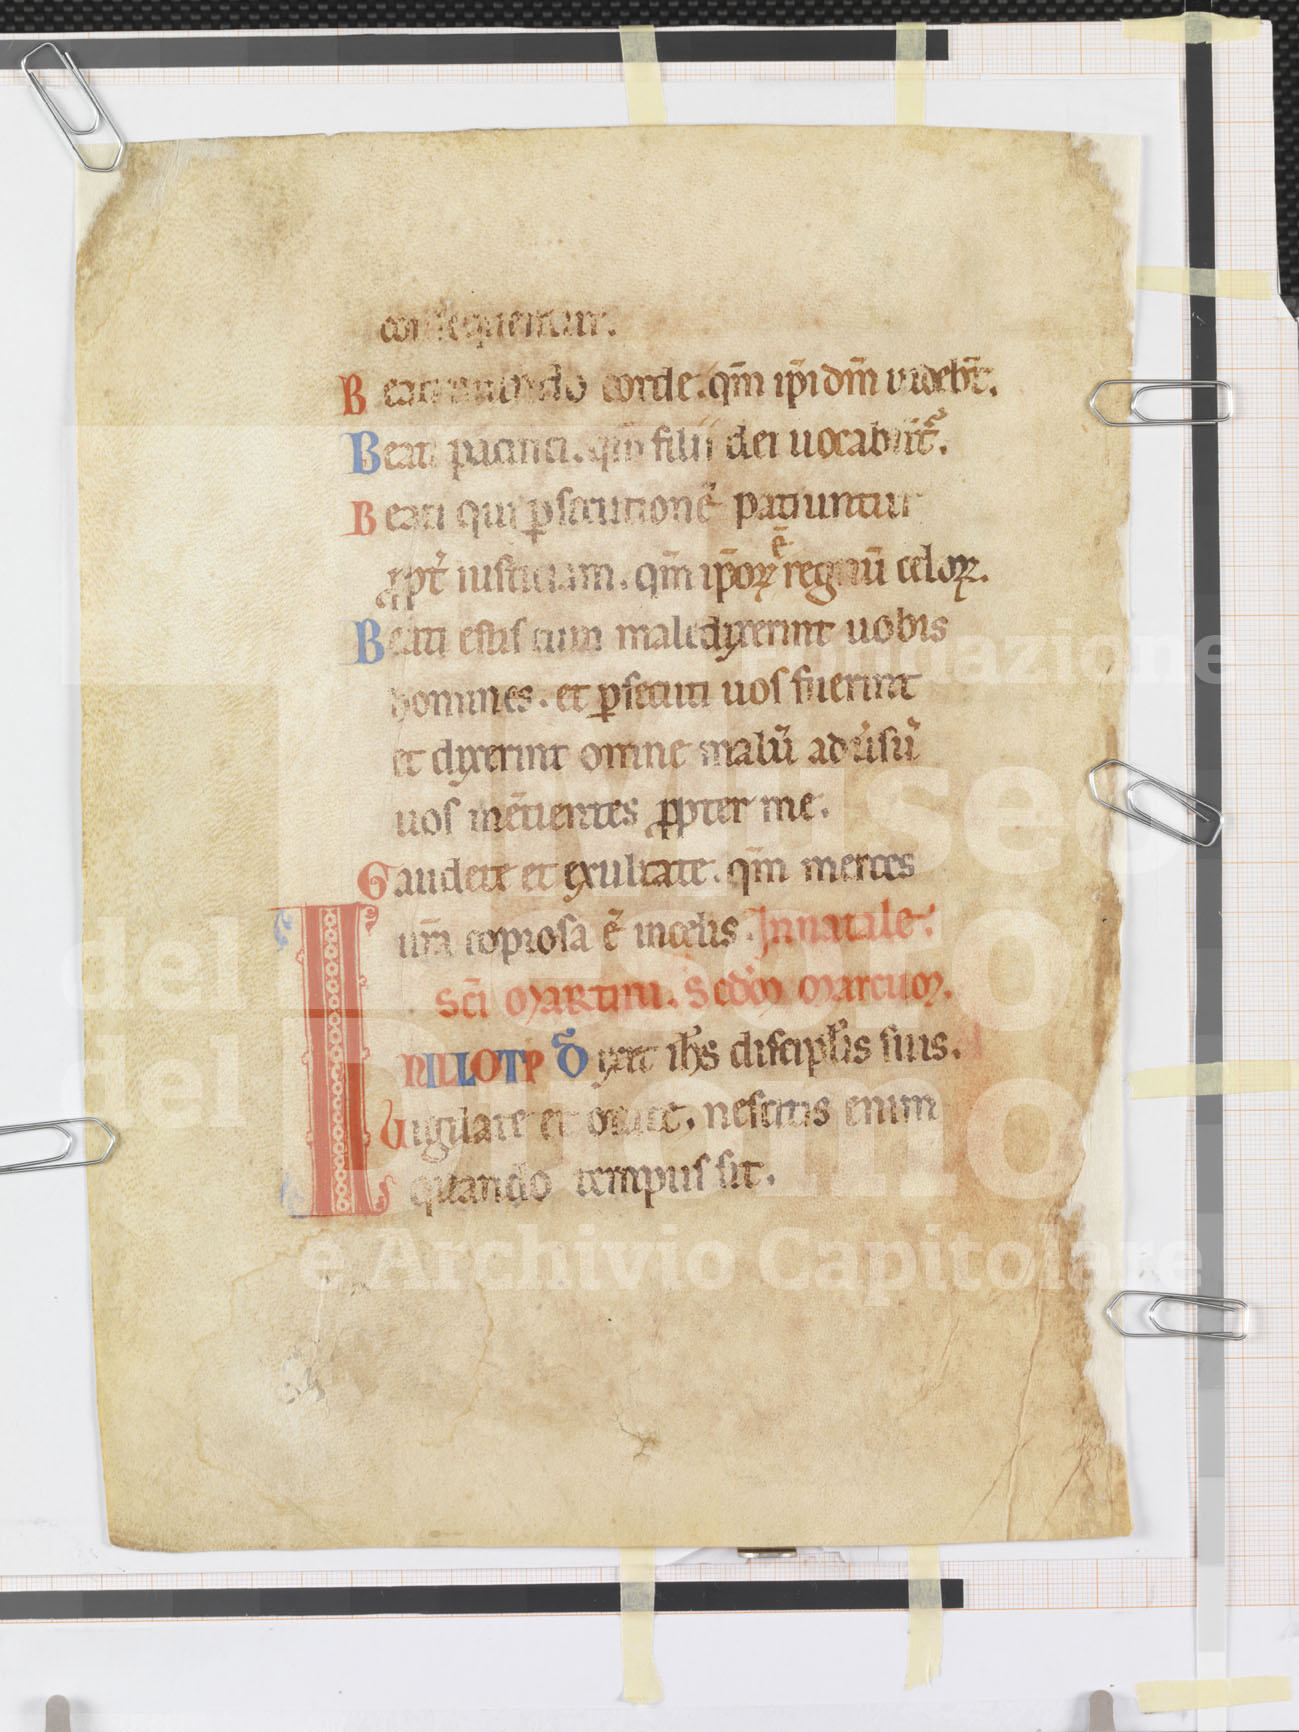 consequentur.
Beati mundo corde. qm̄ ip̄i dm̄ videbt̄.
Beati pacifici. qm̄ filii dei uocabūt᷑.
Beati qui ꝑsecutionē patiuntur
ꝓpt̉ iusticiam. qm̄ ip̄oꝝ ē regnū celoꝝ.
Beati estis cum maledixerint uobis
homines. et ꝑsecuti uos fuerint
et dixerint omne malū adũsũ
uos mētientes ꝓpter me.
Gaudete et exultate. qm̄ merces
ur̄a copiosa ē in celis. In natale
sc̄i Martini. Scd̄m Marcum.
IN ILLO TP̄ Dixit ih̄s discipl̄is suis.
Uigilate et orate. nescitis enim
quando tempus sit.
Fondazione
Museo
del Tesoro
del Duomo
e Archivio Capitolare